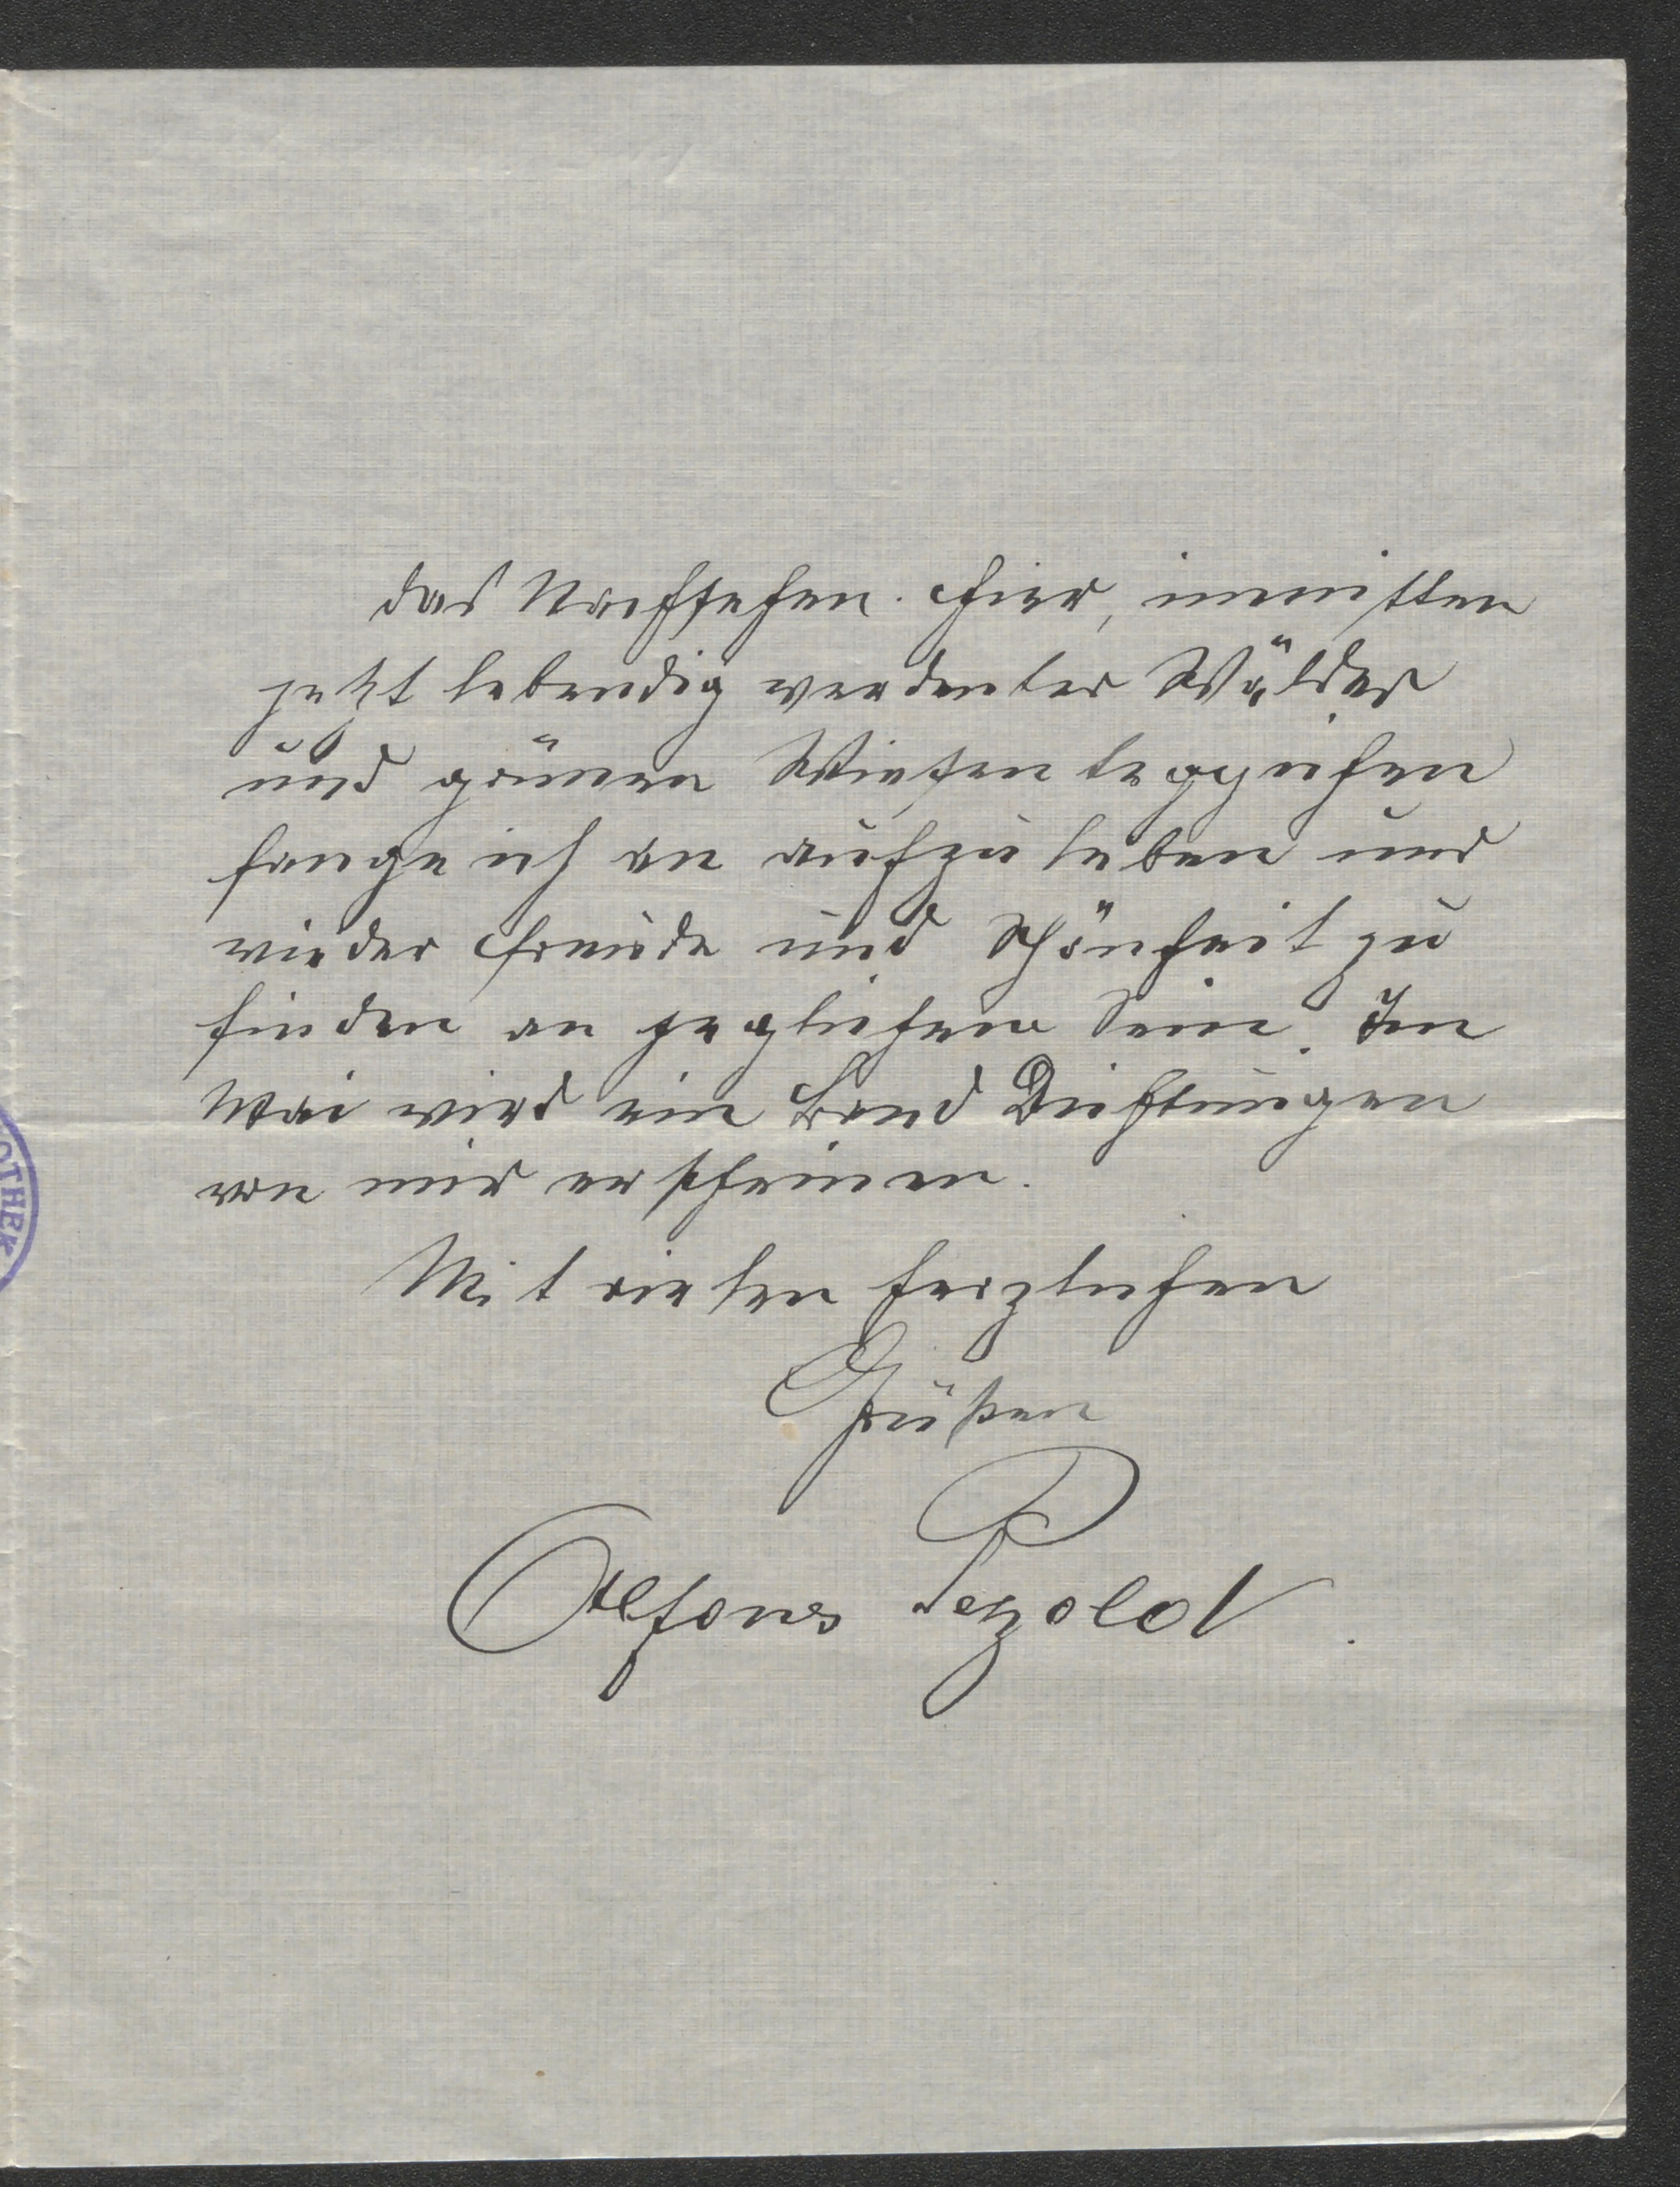 das Nachsehen. Hier, inmitten
jetzt lebendig werdenter Wälder
und grünen Wiesenteppichen
fange ich an aufzuleben und
wieder Freude und Schönheit zu
finden an jeglichem Sein. Im
Mai wird ein Band Dichtungen
von mir erscheinen.
Mit vielen herzlichen
Grüßen
Alfons Pezold.
OTHEK